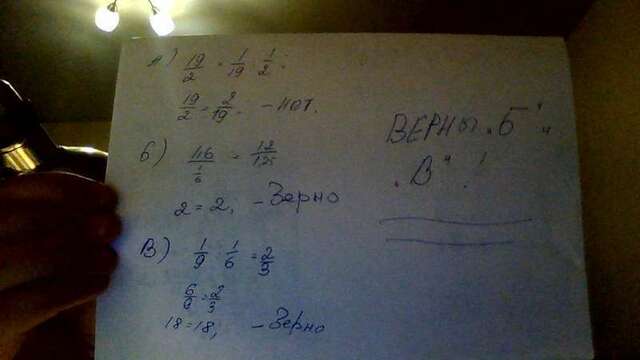 А) 19/2 = 1/19 : 1/2 ;
19/2 = 2/19. - нет.
Б)
2 = 2, - Верно
В) 1/9 : 1/6 = 2/3
6/9 = 2/3
18 = 18, - Верно
ВЕРНЫ „Б“ и
„В“ !